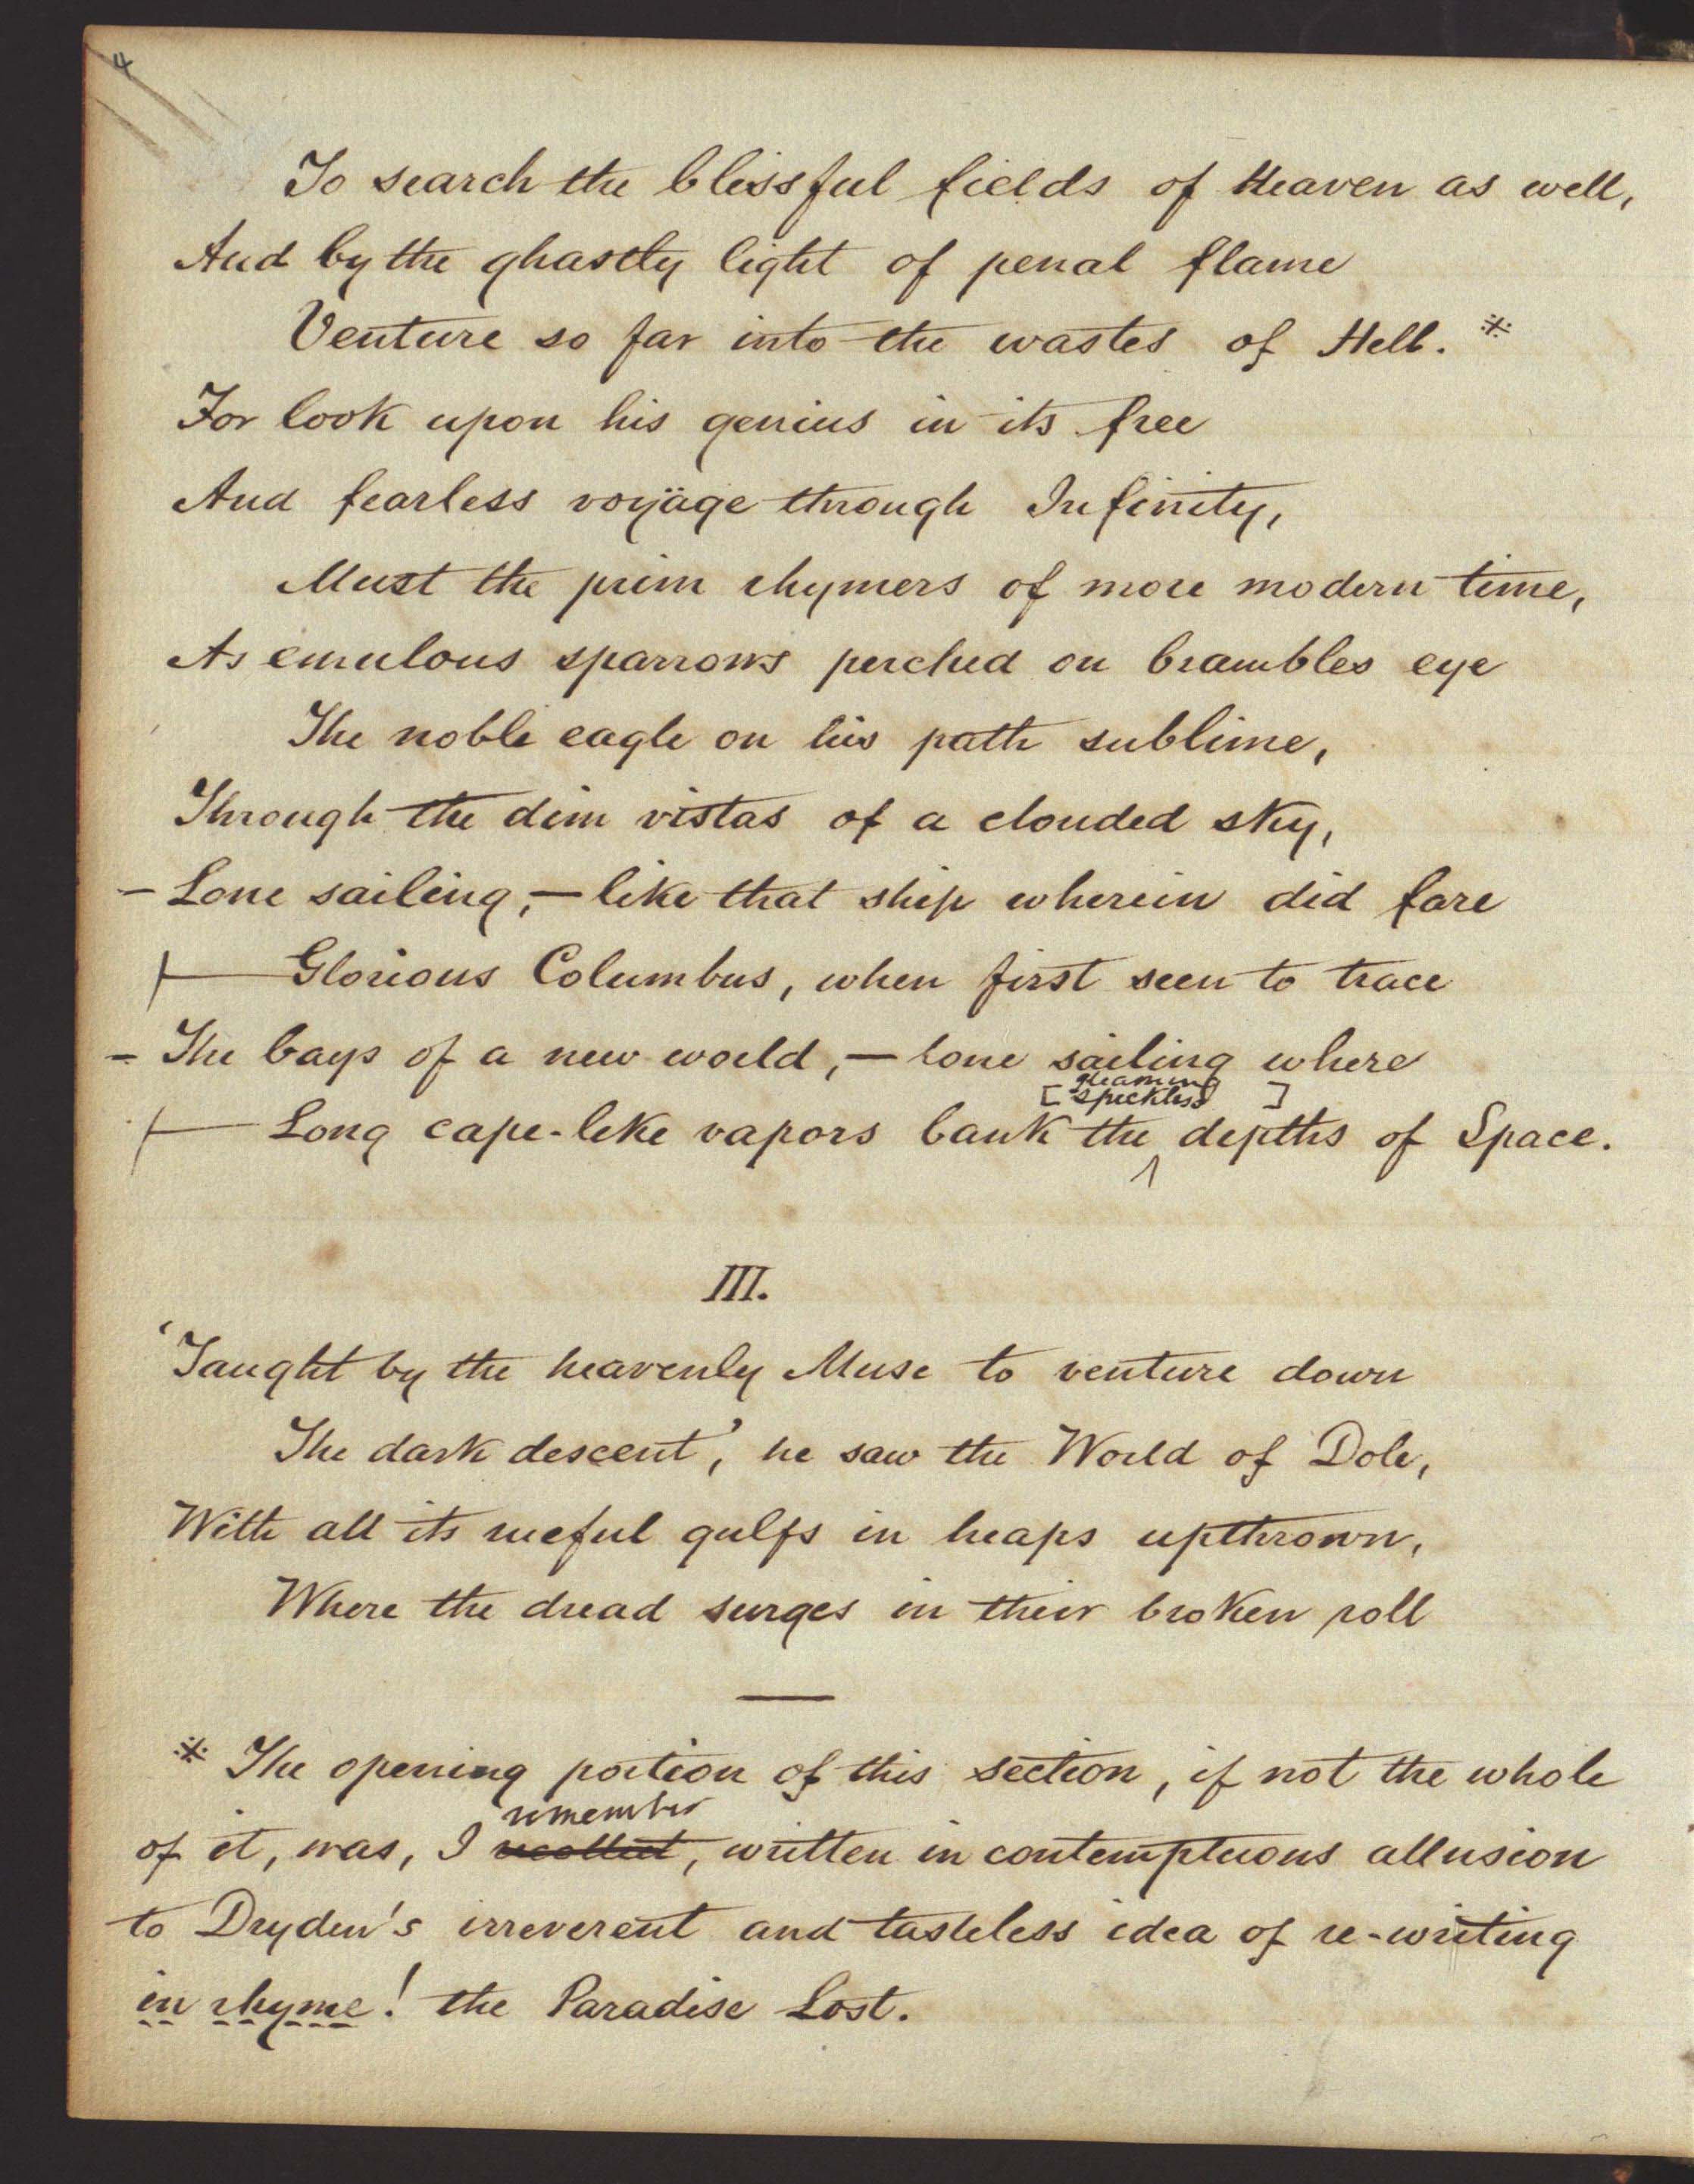 4
To search the blissful fields of Heaven as well,
And by the ghastly light of penal flame
Venture so far into the wastes of Hell. ※
For look upon his genius in its free
And fearless voyäge through Infinity,
Must the prim rhymers of more modern time,
As emulous sparrows perched on brambles eye
The noble eagle on his path sublime,
Through the dim vistas of a clouded sky,
– Lone sailing, – like that ship wherein did fare
Glorious Columbus, when first seen to trace
– The bays of a new world, – lone sailing where
gleaming
[speckless ]
Long cape-like vapors bank the ^ depths of Space.
III.
'Taught by the heavenly Muse to venture down
The dark descent', he saw the World of Dole,
With all its rueful gulfs in heaps upthrown,
Where the dread surges in their broken roll
※ The opening portion of this section, if not the whole
remember
of it, was, I recollect, written in contemptuous allusion
to Dryden's irreverent and tasteless idea of re-writing
in rhyme! the Paradise Lost.